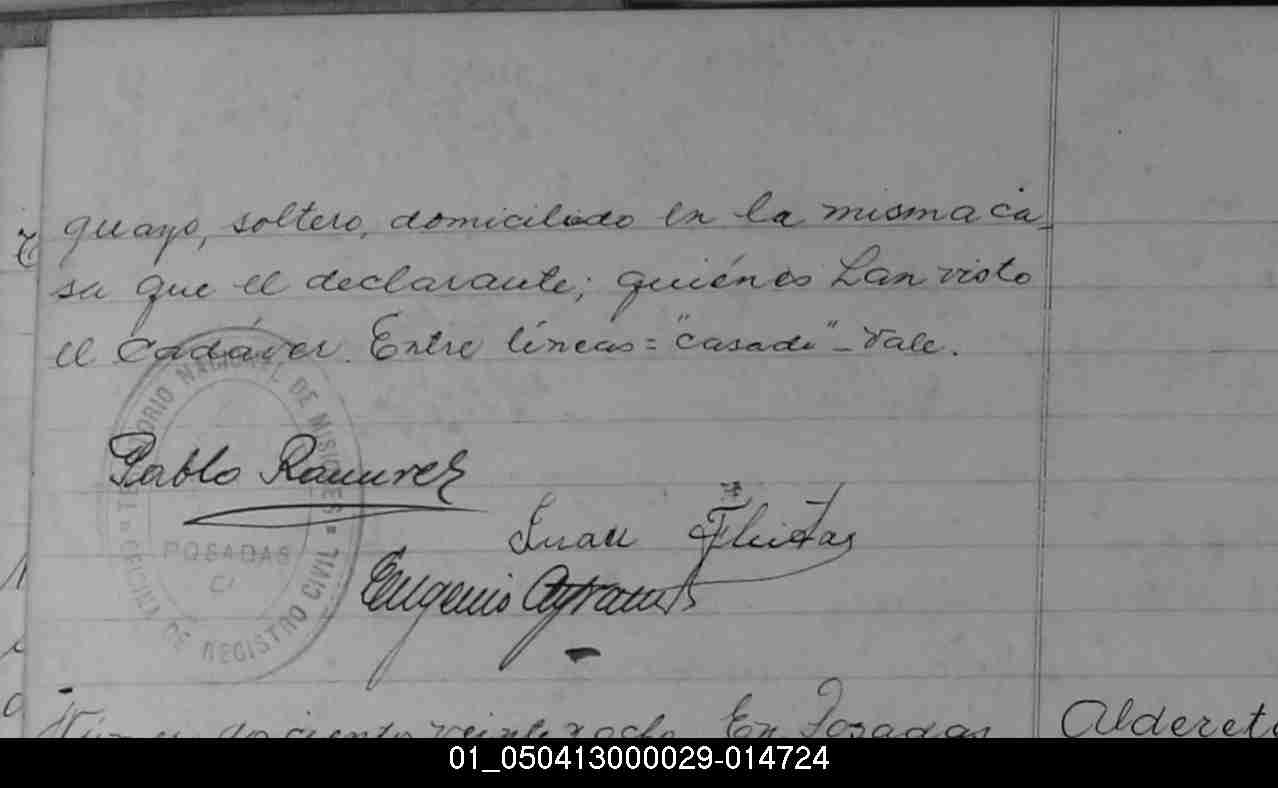 guayo, soltero, domiciliado en la misma ca-
sa que el declarante; quiénes han visto
el cadáver. Entre líneas = "casado" - Vale.
TERRITORIO NACIONAL DE MISIONES
POSADAS
OFICINA DE REGISTRO CIVIL
Pablo Ramirez
Juan
Eugenio
Número doscientos veinte y ocho En Posadas
Alderet
01_050413000029-014724